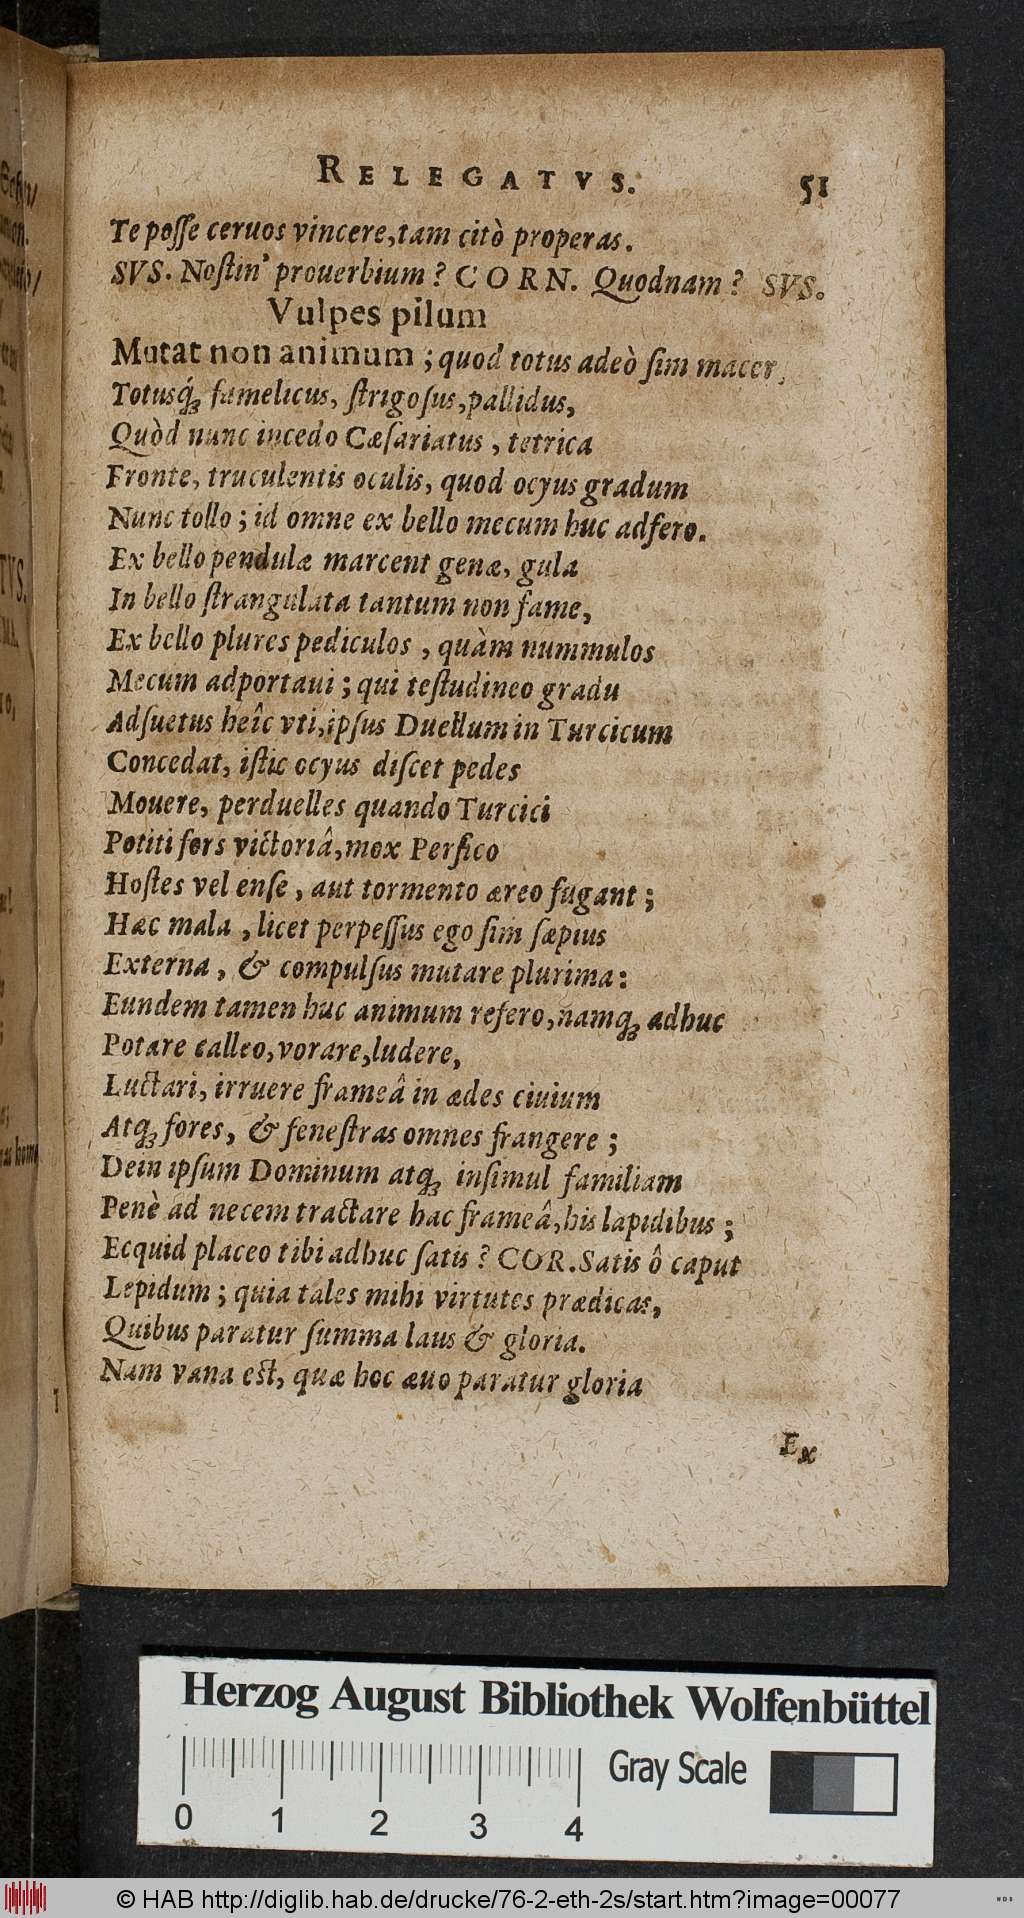 RELEGATVS. 51
Te posse ceruos vincere, tam citò properas.
SVS. Nostin' prouerbium? CORN. Quodnam? SVS.
Vulpes pilum
Mutat non animum; quod totus adeò sim macer,
Totusq́ꝫ famelicus, strigosus, pallidus,
Quòd nunc incedo Cæsariatus, tetrica
Fronte, truculentis oculis, quod ocyus gradum
Nunc tollo; id omne ex bello mecum huc adfero.
Ex bello pendulæ marcent genæ, gula
In bello strangulata tantum non fame,
Ex bello plures pediculos, quàm nummulos
Mecum adportaui; qui testudineo gradu
Adsuetus heîc vti, ipsus Duellum in Turcicum
Concedat, istic ocyus discet pedes
Mouere, perduelles quando Turcici
Potiti fors victoriâ, mox Persico
Hostes vel ense, aut tormento æreo fugant;
Hæc mala, licet perpessus ego sim sæpius
Externa, & compulsus mutare plurima:
Eundem tamen huc animum refero, namqꝫ adhuc
Potare calleo, vorare, ludere,
Luctari, irruere frameâ in ædes ciuium
Atqꝫ fores, & fenestras omnes frangere;
Dein ipsum Dominum atqꝫ insimul familiam
Penè ad necem tractare hac frameâ, his lapidibus;
Ecquid placeo tibi adhuc satis? COR. Satis ô caput
Lepidum; quia tales mihi virtutes prædicas,
Quibus paratur summa laus & gloria.
Nam vana est, quæ hoc æuo paratur gloria
Ex
Herzog August Bibliothek Wolfenbüttel
Gray Scale
0 1 2 3 4
© HAB http://diglib.hab.de/drucke/76-2-eth-2s/start.htm?image=00077